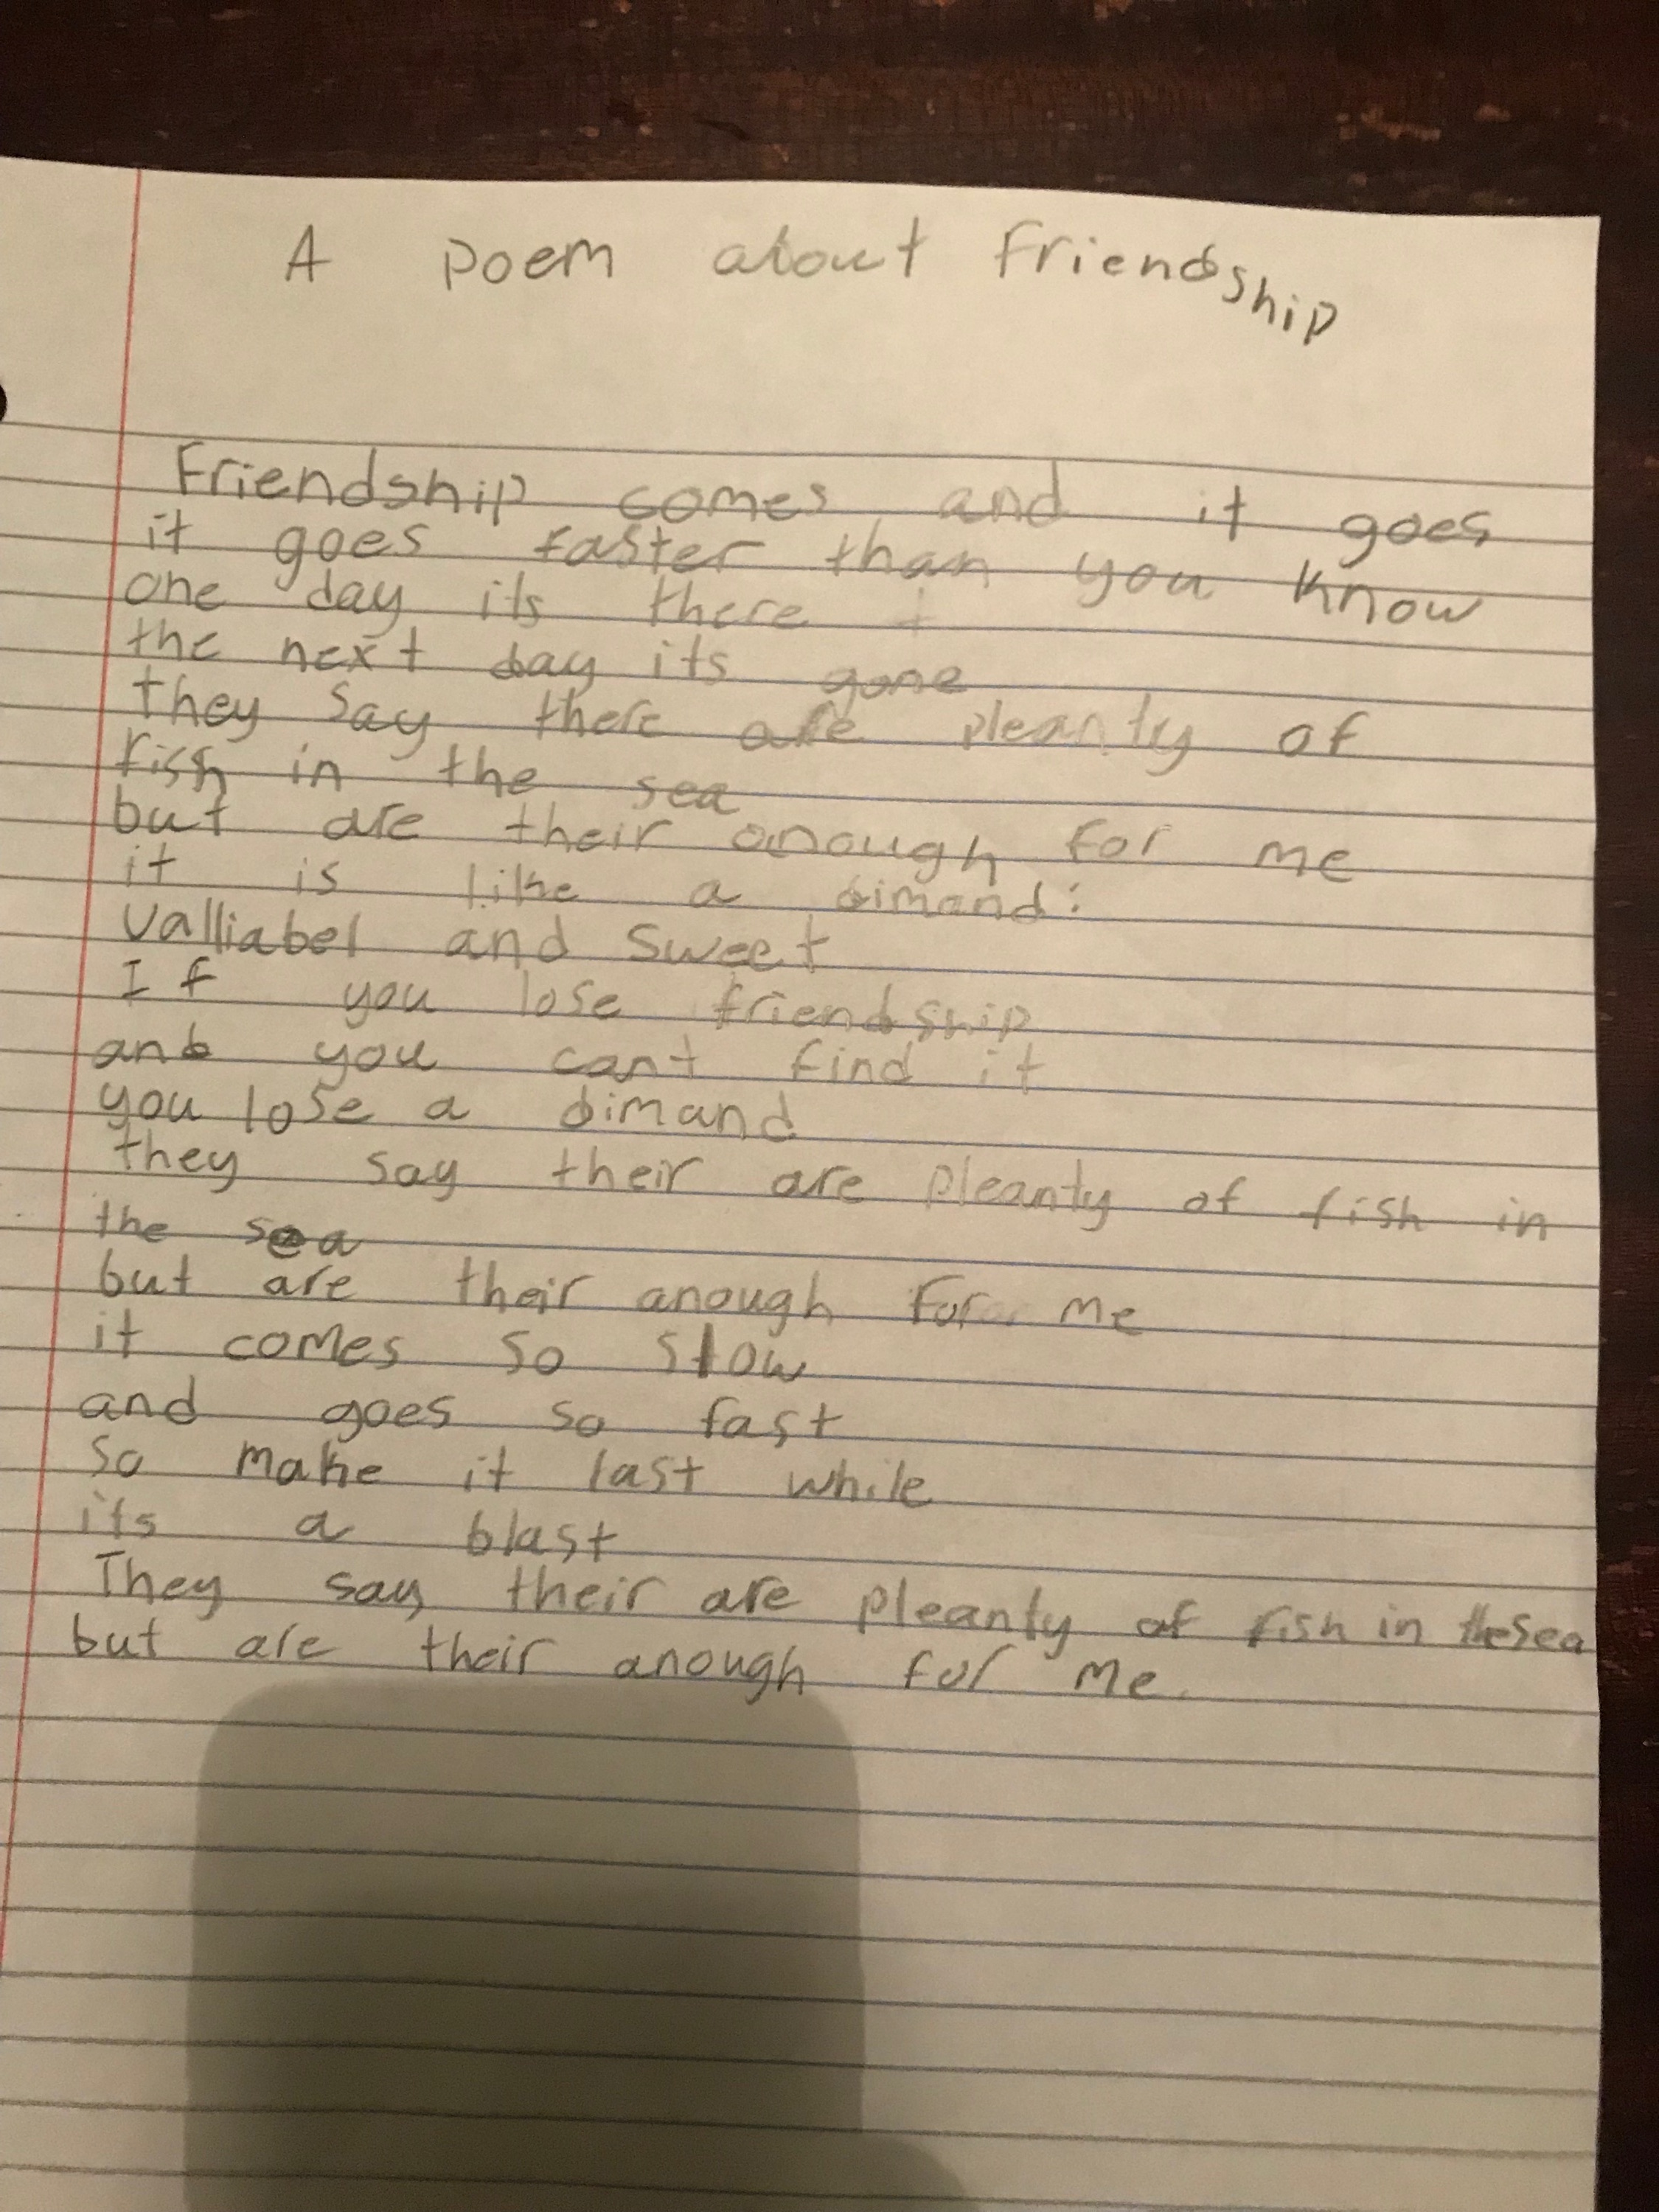 A poem about friendship
Friendship comes and it goes
it goes faster than you know
one day its there
the next day its gone
they say there are pleanty of
fish in the sea
but are their anough for me
it is like a dimand:
valliabel and sweet
If you lose friendship
and you cant find it
you lose a dimand
they say their are pleanty of fish in
the sea
but are their anough for me
it comes so slow
and goes so fast
so make it last while
its a blast
They say their are pleanty of fish in the sea
but are their anough for me.